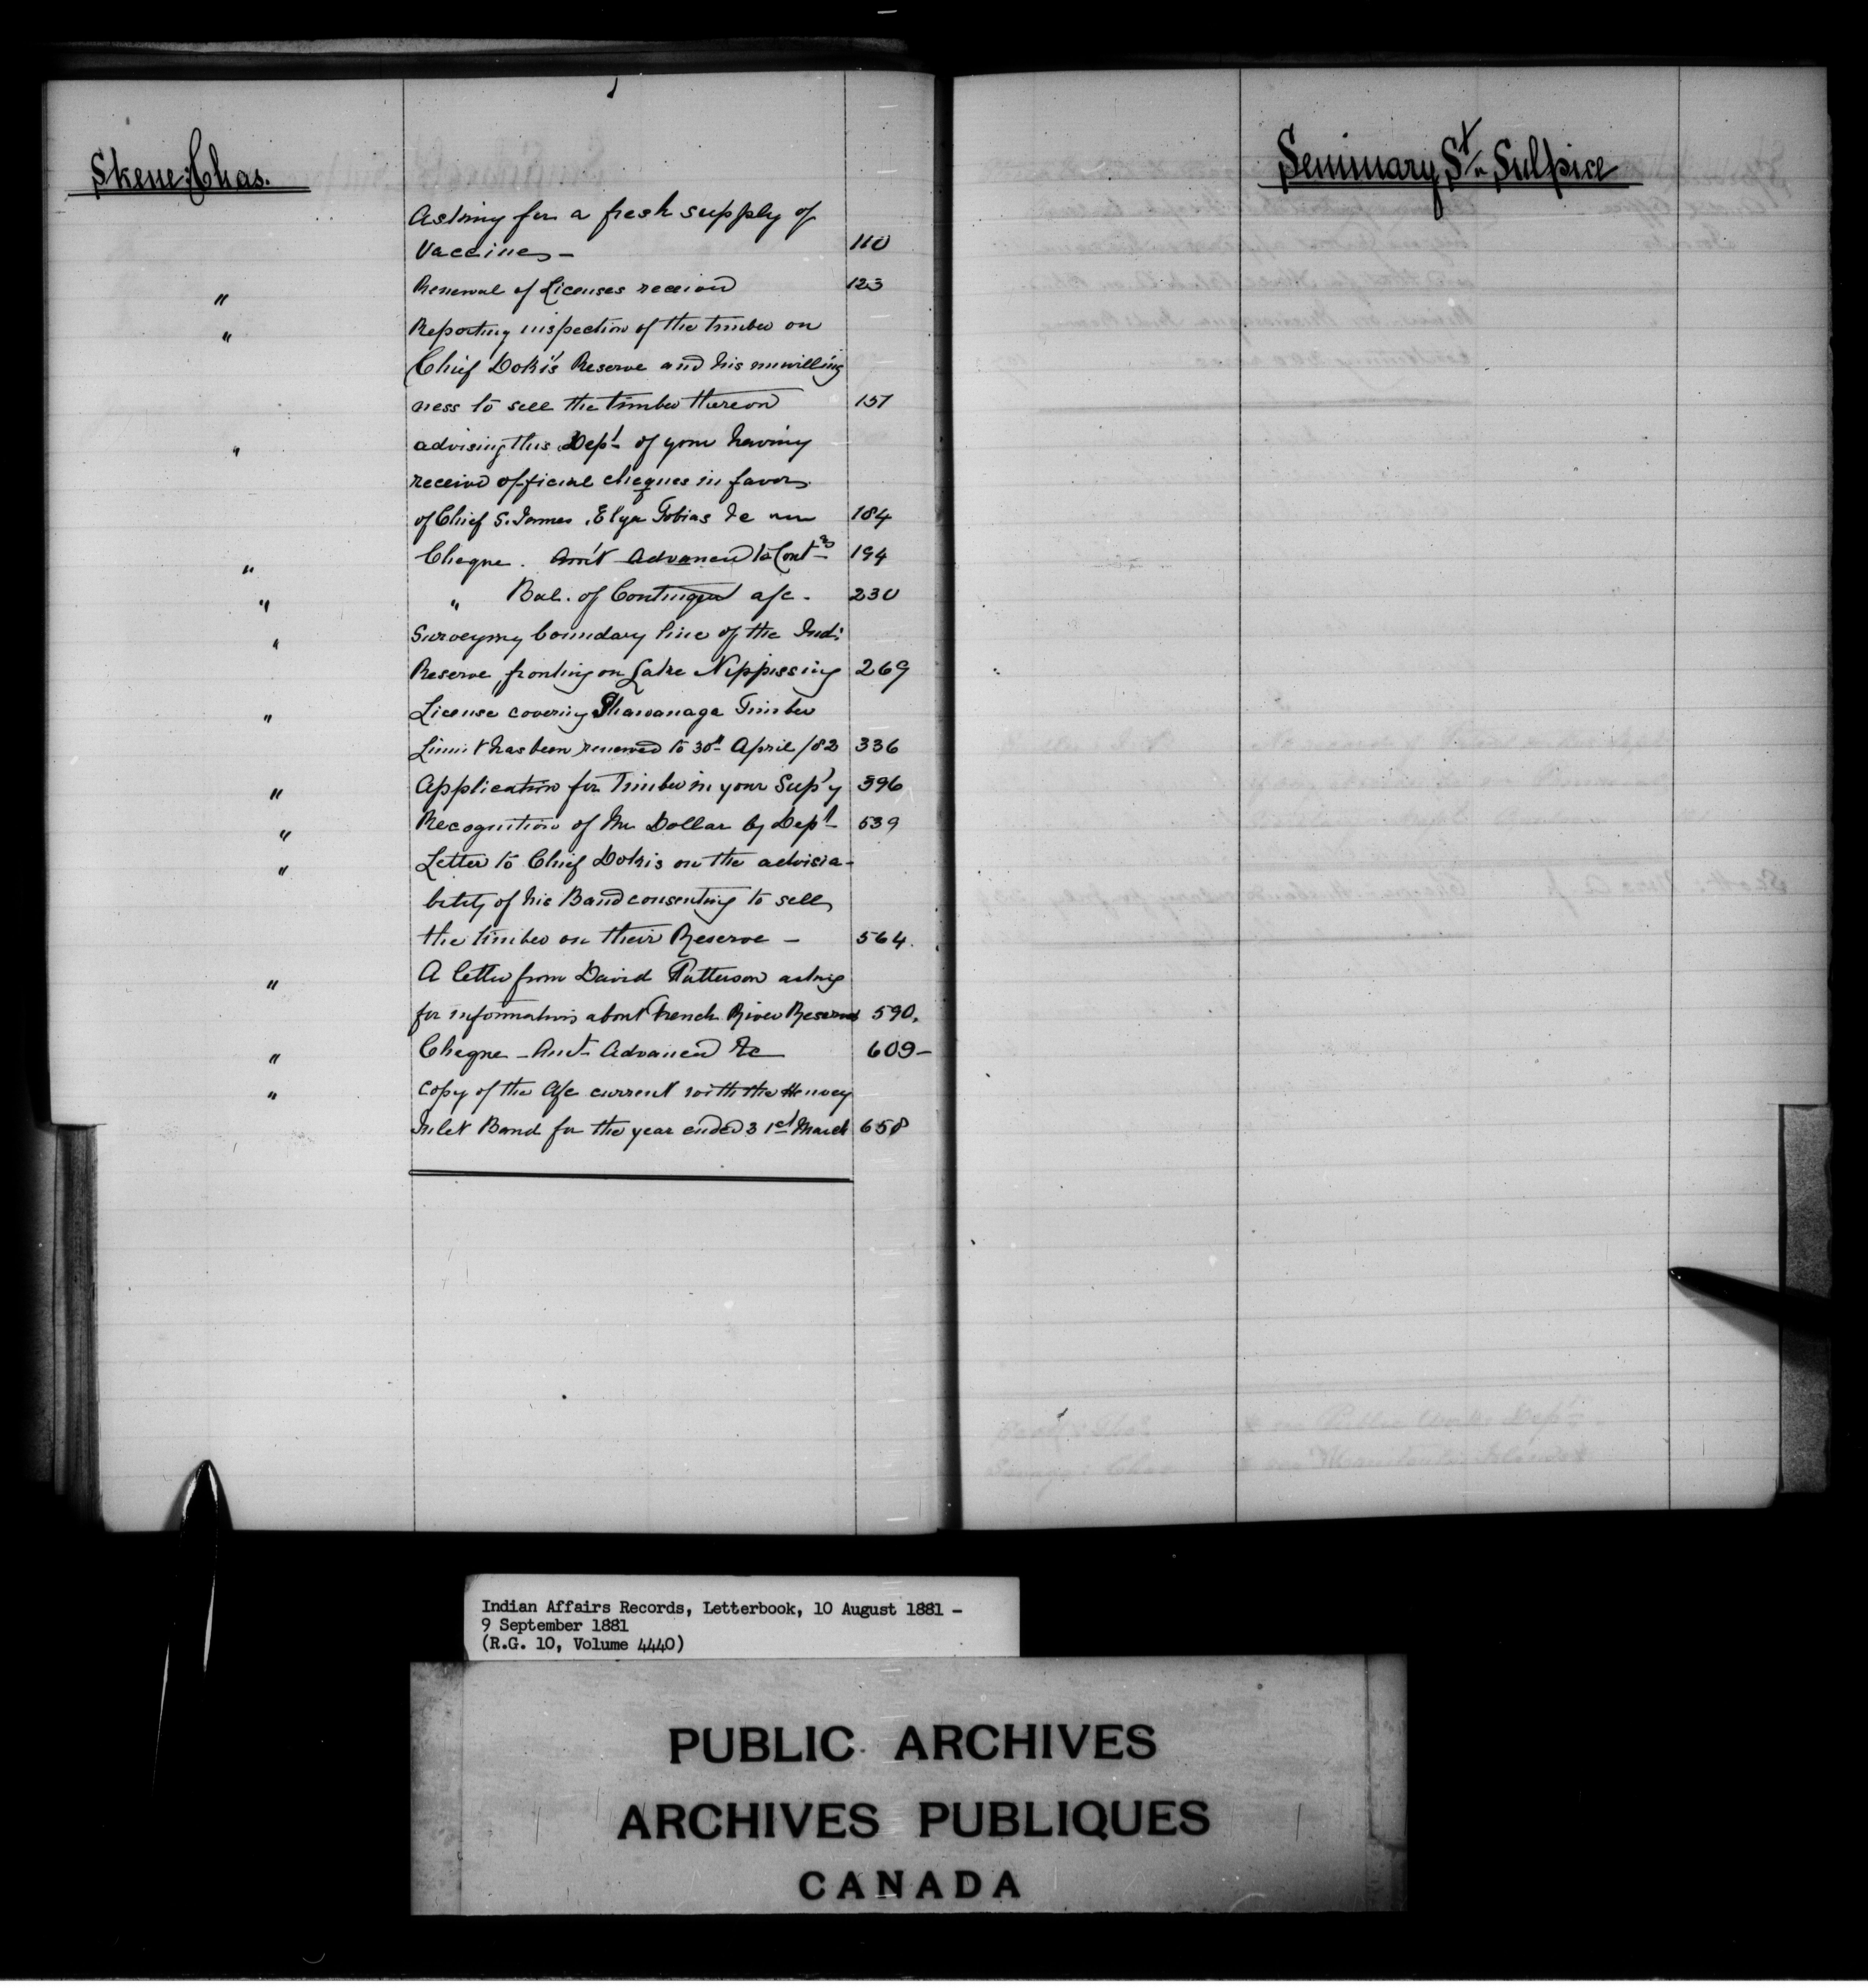 Skene: Chas.
Asking for a fresh supply of
Vaccine - 110
" Renewal of Licenses received 123
" Reporting inspection of the timber on
Chief Dokis' Reserve and his unwilling
ness to sell the timber thereon 157
" advising this Dept of your having
received official cheques in favor
of Chief S. James, Elya Tobias &c 184
" Cheque. Am't Advanced to Cont 194
" " Bal. of Contingen a/c. 230
" Surveying boundary line of the Ind:
Reserve, fronting on Lake Nippissing 269
" License covering Shawanaga Timber
Limit has been renewed to 30th April /82 336
" Application for Timber in your Sup'y 396
" Recognition of Mr Dollar by Dept 539
" Letter to Chief Dokis on the advisia-
bility of his Band consenting to sell
the timber on their Reserve - 564.
" A letter from David Patterson asking
for information about French River Reserve 590.
" Cheque - Amt Advanced &c 609-
" Copy of the a/c current with the Henvey
Inlet Band for the year ended 31st March 658
Seminary St. Sulpice
Indian Affairs Records, Letterbook, 10 August 1881 -
9 September 1881
(R.G. 10, Volume 4440)
PUBLIC ARCHIVES
ARCHIVES PUBLIQUES
CANADA